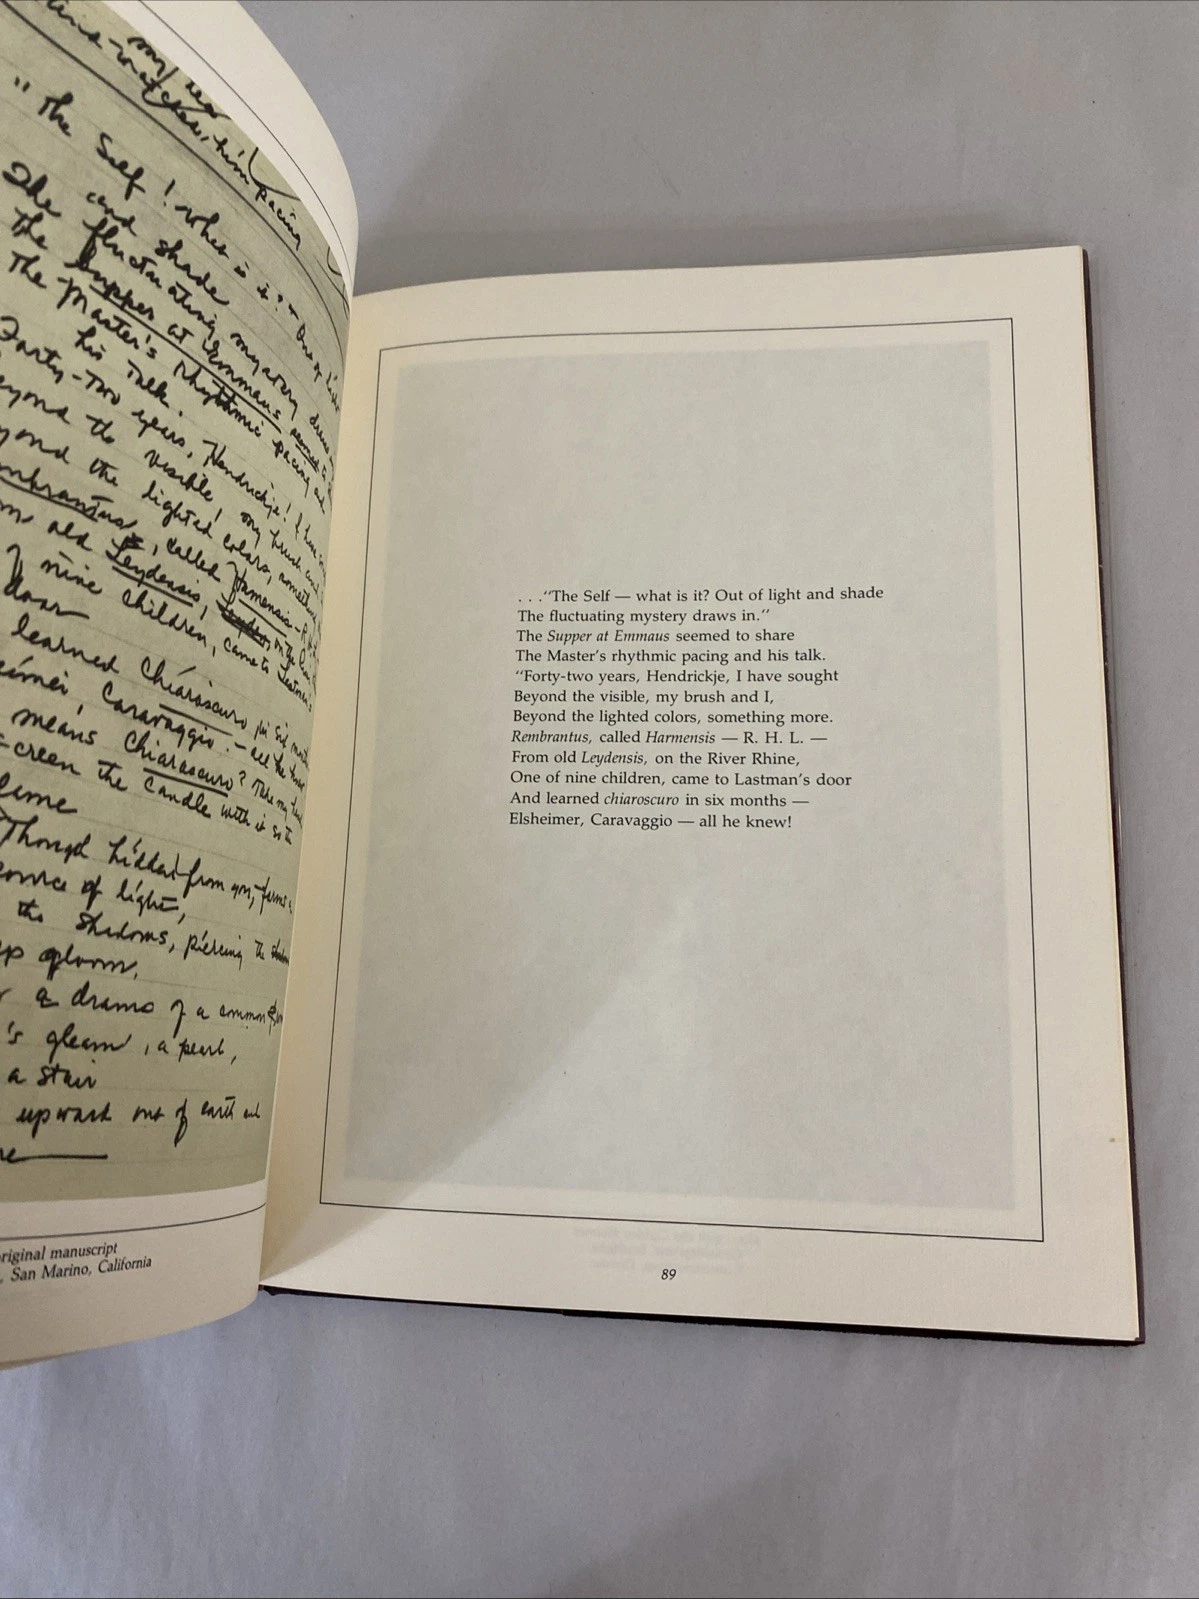 my dear
-watched him pacing
"The Self! what is it? - Out of light
and shade
The fluctuating mystery draws in
The Supper at Emmaus seemed to
The Master's rhythmic pacing and
his talk.
Forty-two years, Hendrickje! I have
beyond the visible, my brush and
beyond the lighted colors, something
called Harmensis -
old Leydensis, on the
of nine children, came to Lastman's
door
learned chiaroscuro in six
Caravaggio - all he knew
means chiaroscuro? Take my
screen the candle with it so the
flame
Though hidden from you, forms a
source of light,
the shadows, piercing the
gloom.
a drama of a common
's gleam, a pearl,
a stair
upward out of earth and
original manuscript
, San Marino, California
. . ."The Self — what is it? Out of light and shade
The fluctuating mystery draws in."
The Supper at Emmaus seemed to share
The Master's rhythmic pacing and his talk.
"Forty-two years, Hendrickje, I have sought
Beyond the visible, my brush and I,
Beyond the lighted colors, something more.
Rembrantus, called Harmensis — R. H. L. —
From old Leydensis, on the River Rhine,
One of nine children, came to Lastman's door
And learned chiaroscuro in six months —
Elsheimer, Caravaggio — all he knew!
89